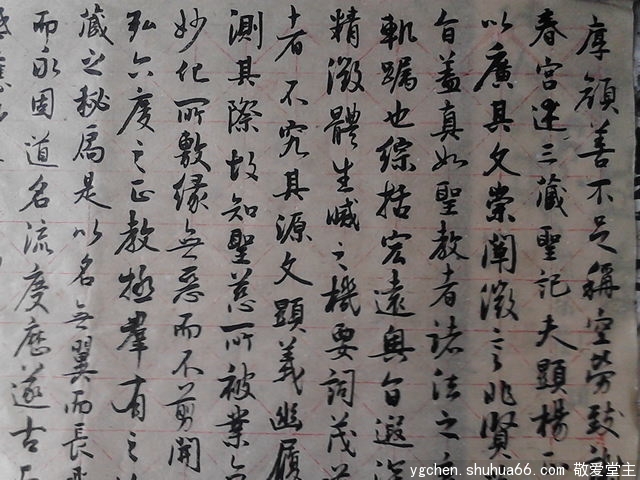 厚顔善不足稱空勞致
春宮述三藏聖記夫顯楊正
以廣其文崇闡微言非賢
旨蓋真如聖教者諸法之
軌躅也綜括宏遠奧旨遐深
精微體生滅之機要詞茂道
者不究其源文顯義幽履
測其際故知聖慈所被業
妙化所敷緣無惡而不剪開
弘六度之正教拯羣有之
藏之秘扃是以名無翼而長飛
而永固道名流慶歷遂古
ygchen.shuhua66.com 敬爱堂主